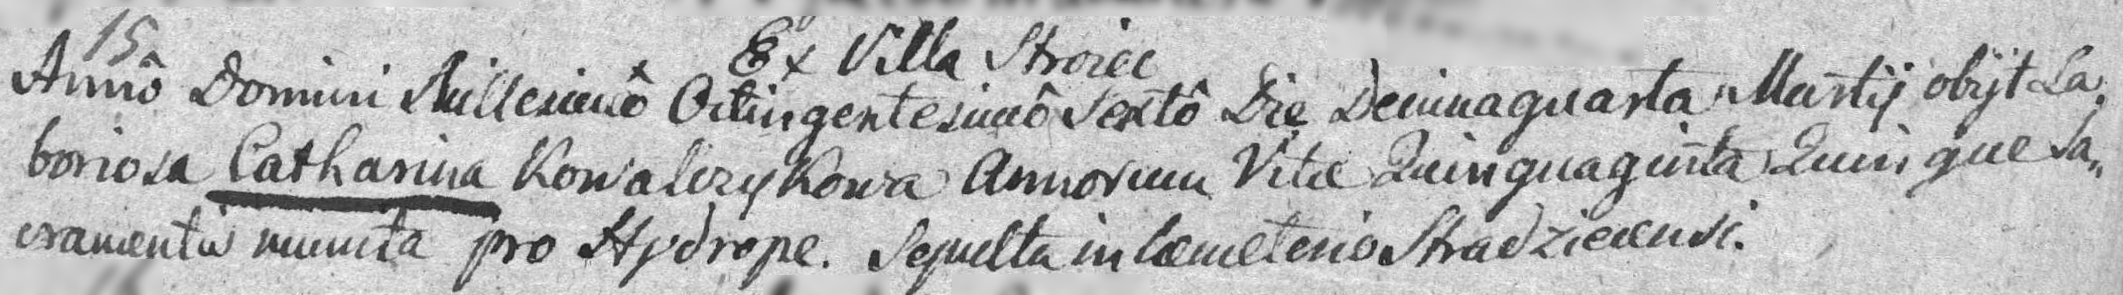 15
Ex Villa Stroiec
Annô Domini Millesimô Octingentesimô Sextô Die Decimaquarta Martij obijt La„
boriosa Catharina Kowalczykowa Annorum Vitæ Quinquaginta Quinque Sa„
cramentis munita pro Hydrope. Sepulta in Cœmeterio Stradziecensi.